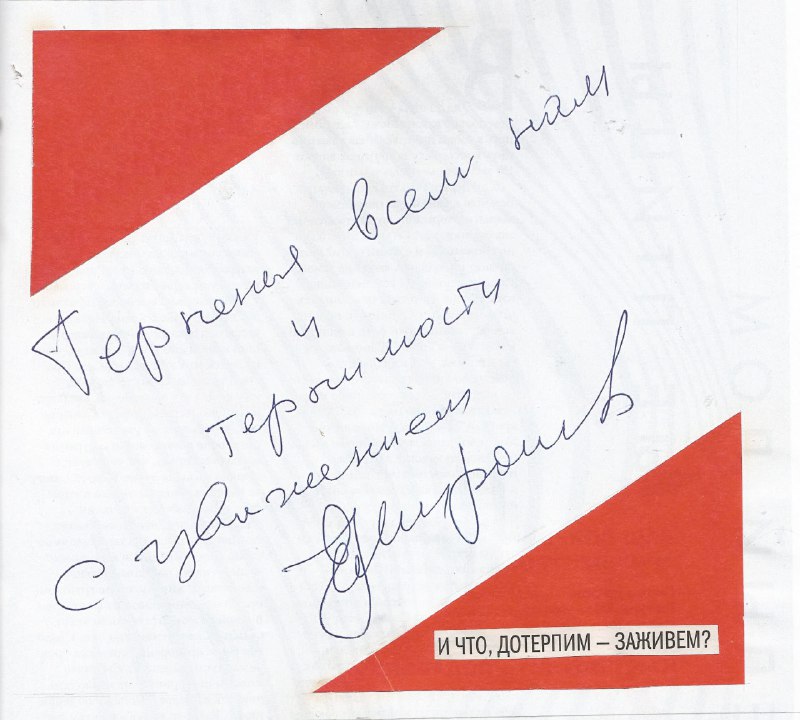 Терпенья всем нам
и
терпимости
с уважением
И ЧТО, ДОТЕРПИМ – ЗАЖИВЕМ?